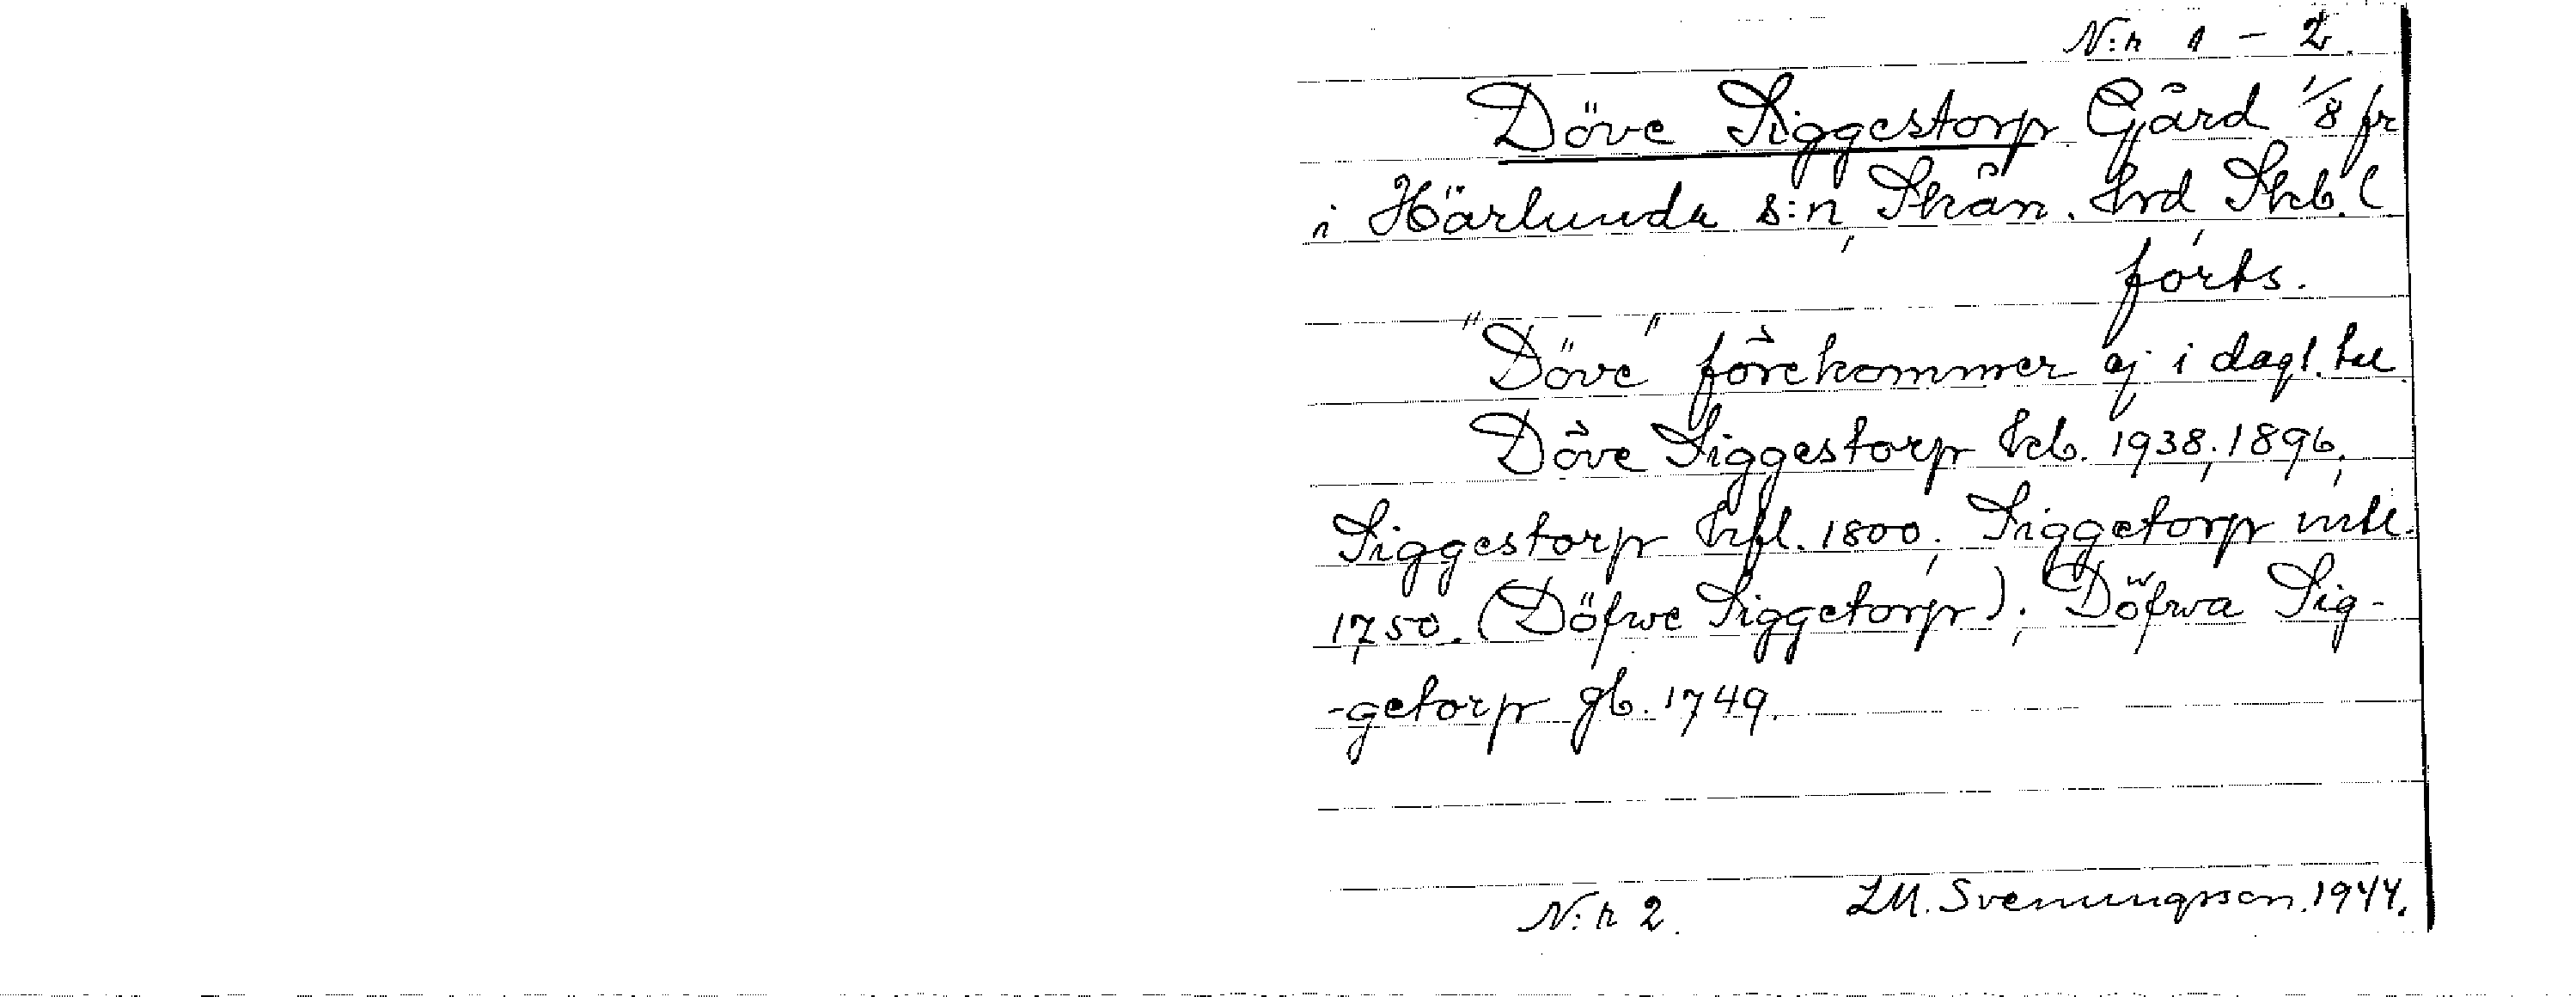 N:r 1 - 2.
Döve Siggestorp Gård 1/8 fr
i Härlunda s:n, Skån. hrd, Skb. l
forts.
"Döve" förekommer ej i dagl. tal.
Döve Siggestorp kb. 1938; 1896;
Siggestorp hfl. 1800; Siggetorp mtl.
1750. (Döfwe Siggetorp); Döfwa Sig-
-getorp gb. 1749.
N:r 2. LM. Svenungsson. 1944.